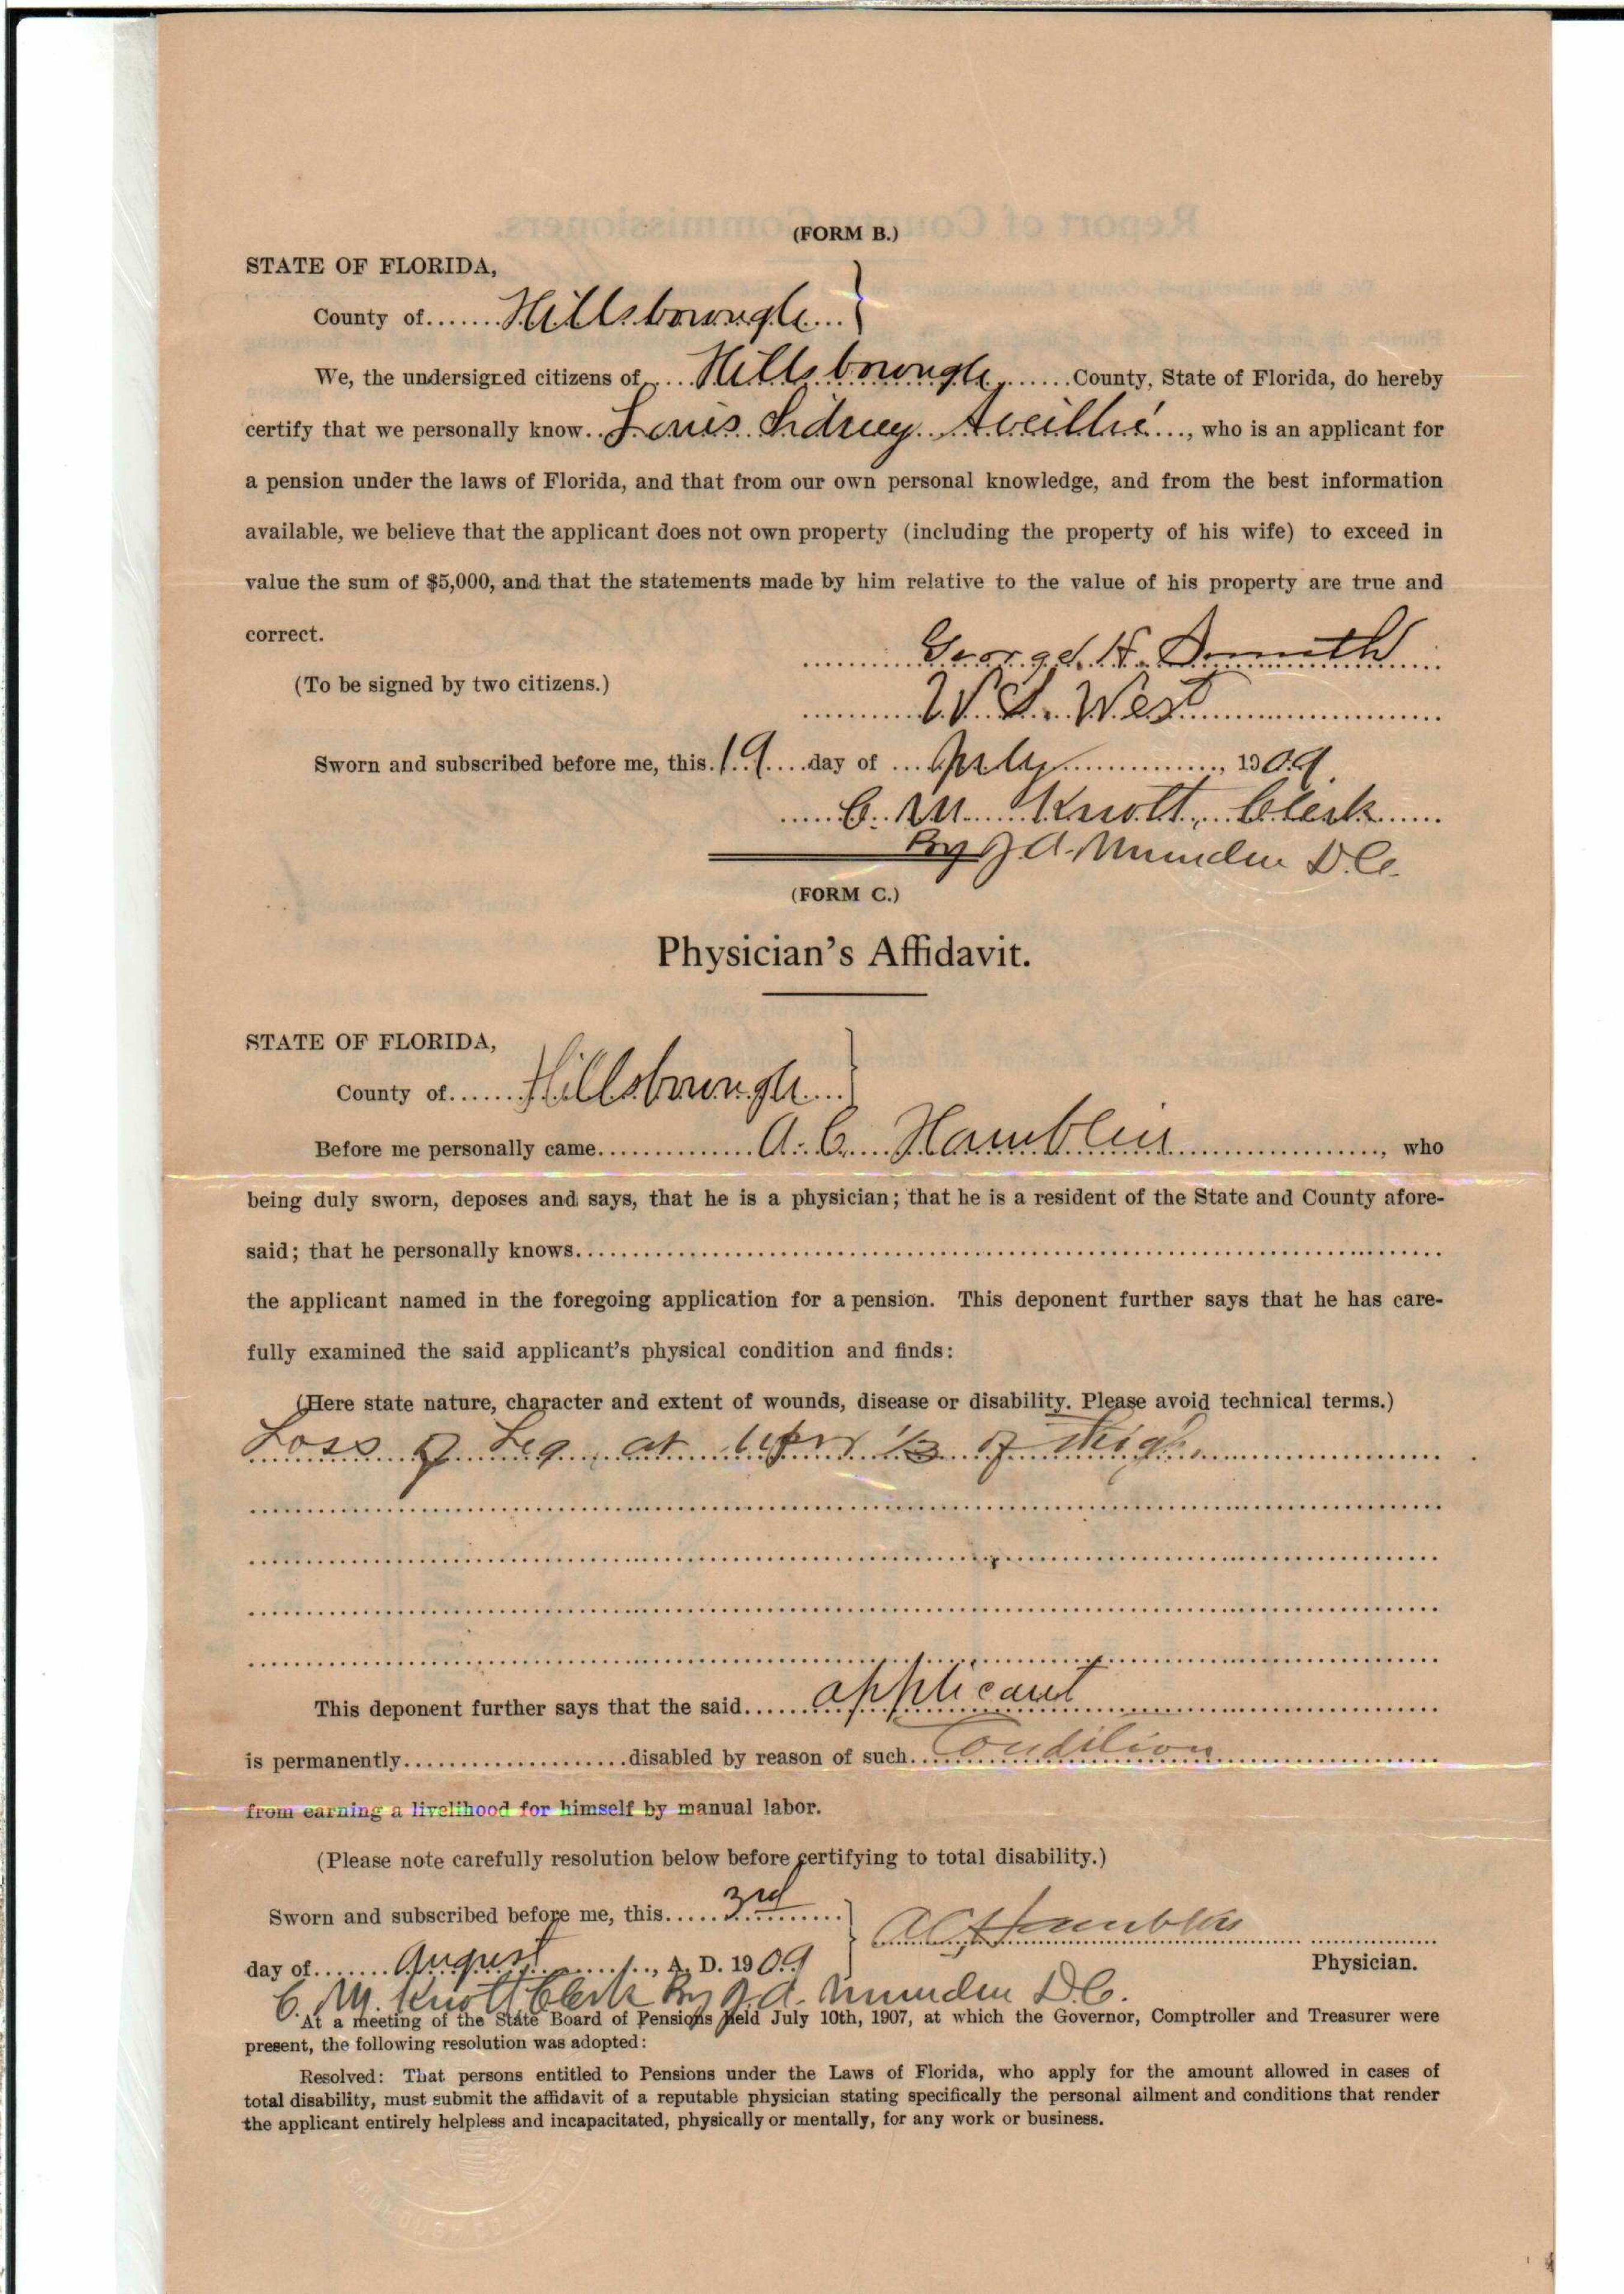 (FORM B.)
STATE OF FLORIDA,
County of Hillsborough }
We, the undersigned citizens of Hillsborough County, State of Florida, do hereby
certify that we personally know Louis Sidney Aveilhé, who is an applicant for
a pension under the laws of Florida, and that from our own personal knowledge, and from the best information
available, we believe that the applicant does not own property (including the property of his wife) to exceed in
value the sum of $5,000, and that the statements made by him relative to the value of his property are true and
correct.
George H. Smith
(To be signed by two citizens.)
W. S. West
Sworn and subscribed before me, this 19 day of July, 1909.
C. M. Knott, Clerk
By J. A. Munden D.C.
(FORM C.)
Physician's Affidavit.
STATE OF FLORIDA,
County of Hillsborough }
Before me personally came A. C. Hamblin, who
being duly sworn, deposes and says, that he is a physician; that he is a resident of the State and County afore-
said; that he personally knows
the applicant named in the foregoing application for a pension. This deponent further says that he has care-
fully examined the said applicant's physical condition and finds:
(Here state nature, character and extent of wounds, disease or disability. Please avoid technical terms.)
Loss of Leg at upper 1/3 of thigh
This deponent further says that the said applicant
is permanently disabled by reason of such Condition
from earning a livelihood for himself by manual labor.
(Please note carefully resolution below before certifying to total disability.)
Sworn and subscribed before me, this 3rd } A C Hamblin
day of August, A. D. 1909 Physician.
C. M. Knott Clerk By J. A. Munden D.C.
At a meeting of the State Board of Pensions held July 10th, 1907, at which the Governor, Comptroller and Treasurer were
present, the following resolution was adopted:
Resolved: That persons entitled to Pensions under the Laws of Florida, who apply for the amount allowed in cases of
total disability, must submit the affidavit of a reputable physician stating specifically the personal ailment and conditions that render
the applicant entirely helpless and incapacitated, physically or mentally, for any work or business.